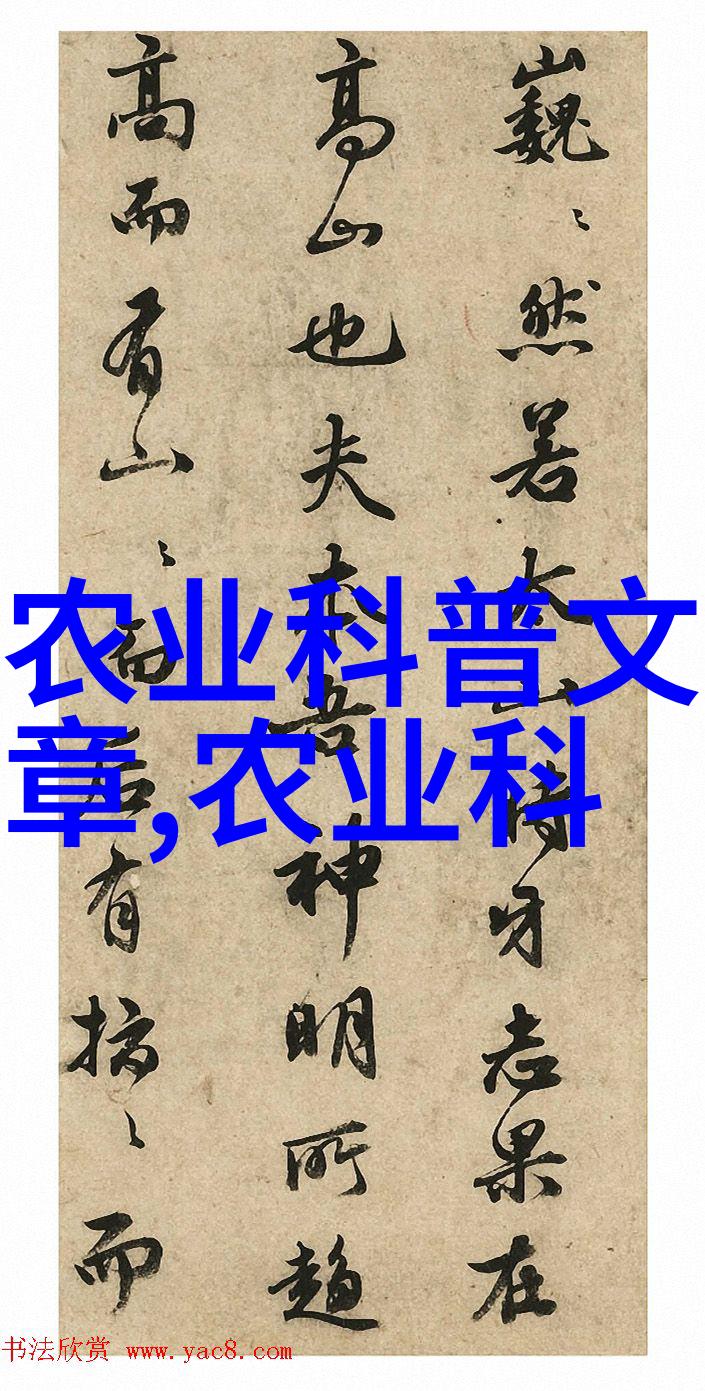 巍〻然若太山時牙志果在
高山也夫吾神明所趨
高而有山〻而后有〻而
农业科普文
章,农业科
书法欣赏 www.yac8.com